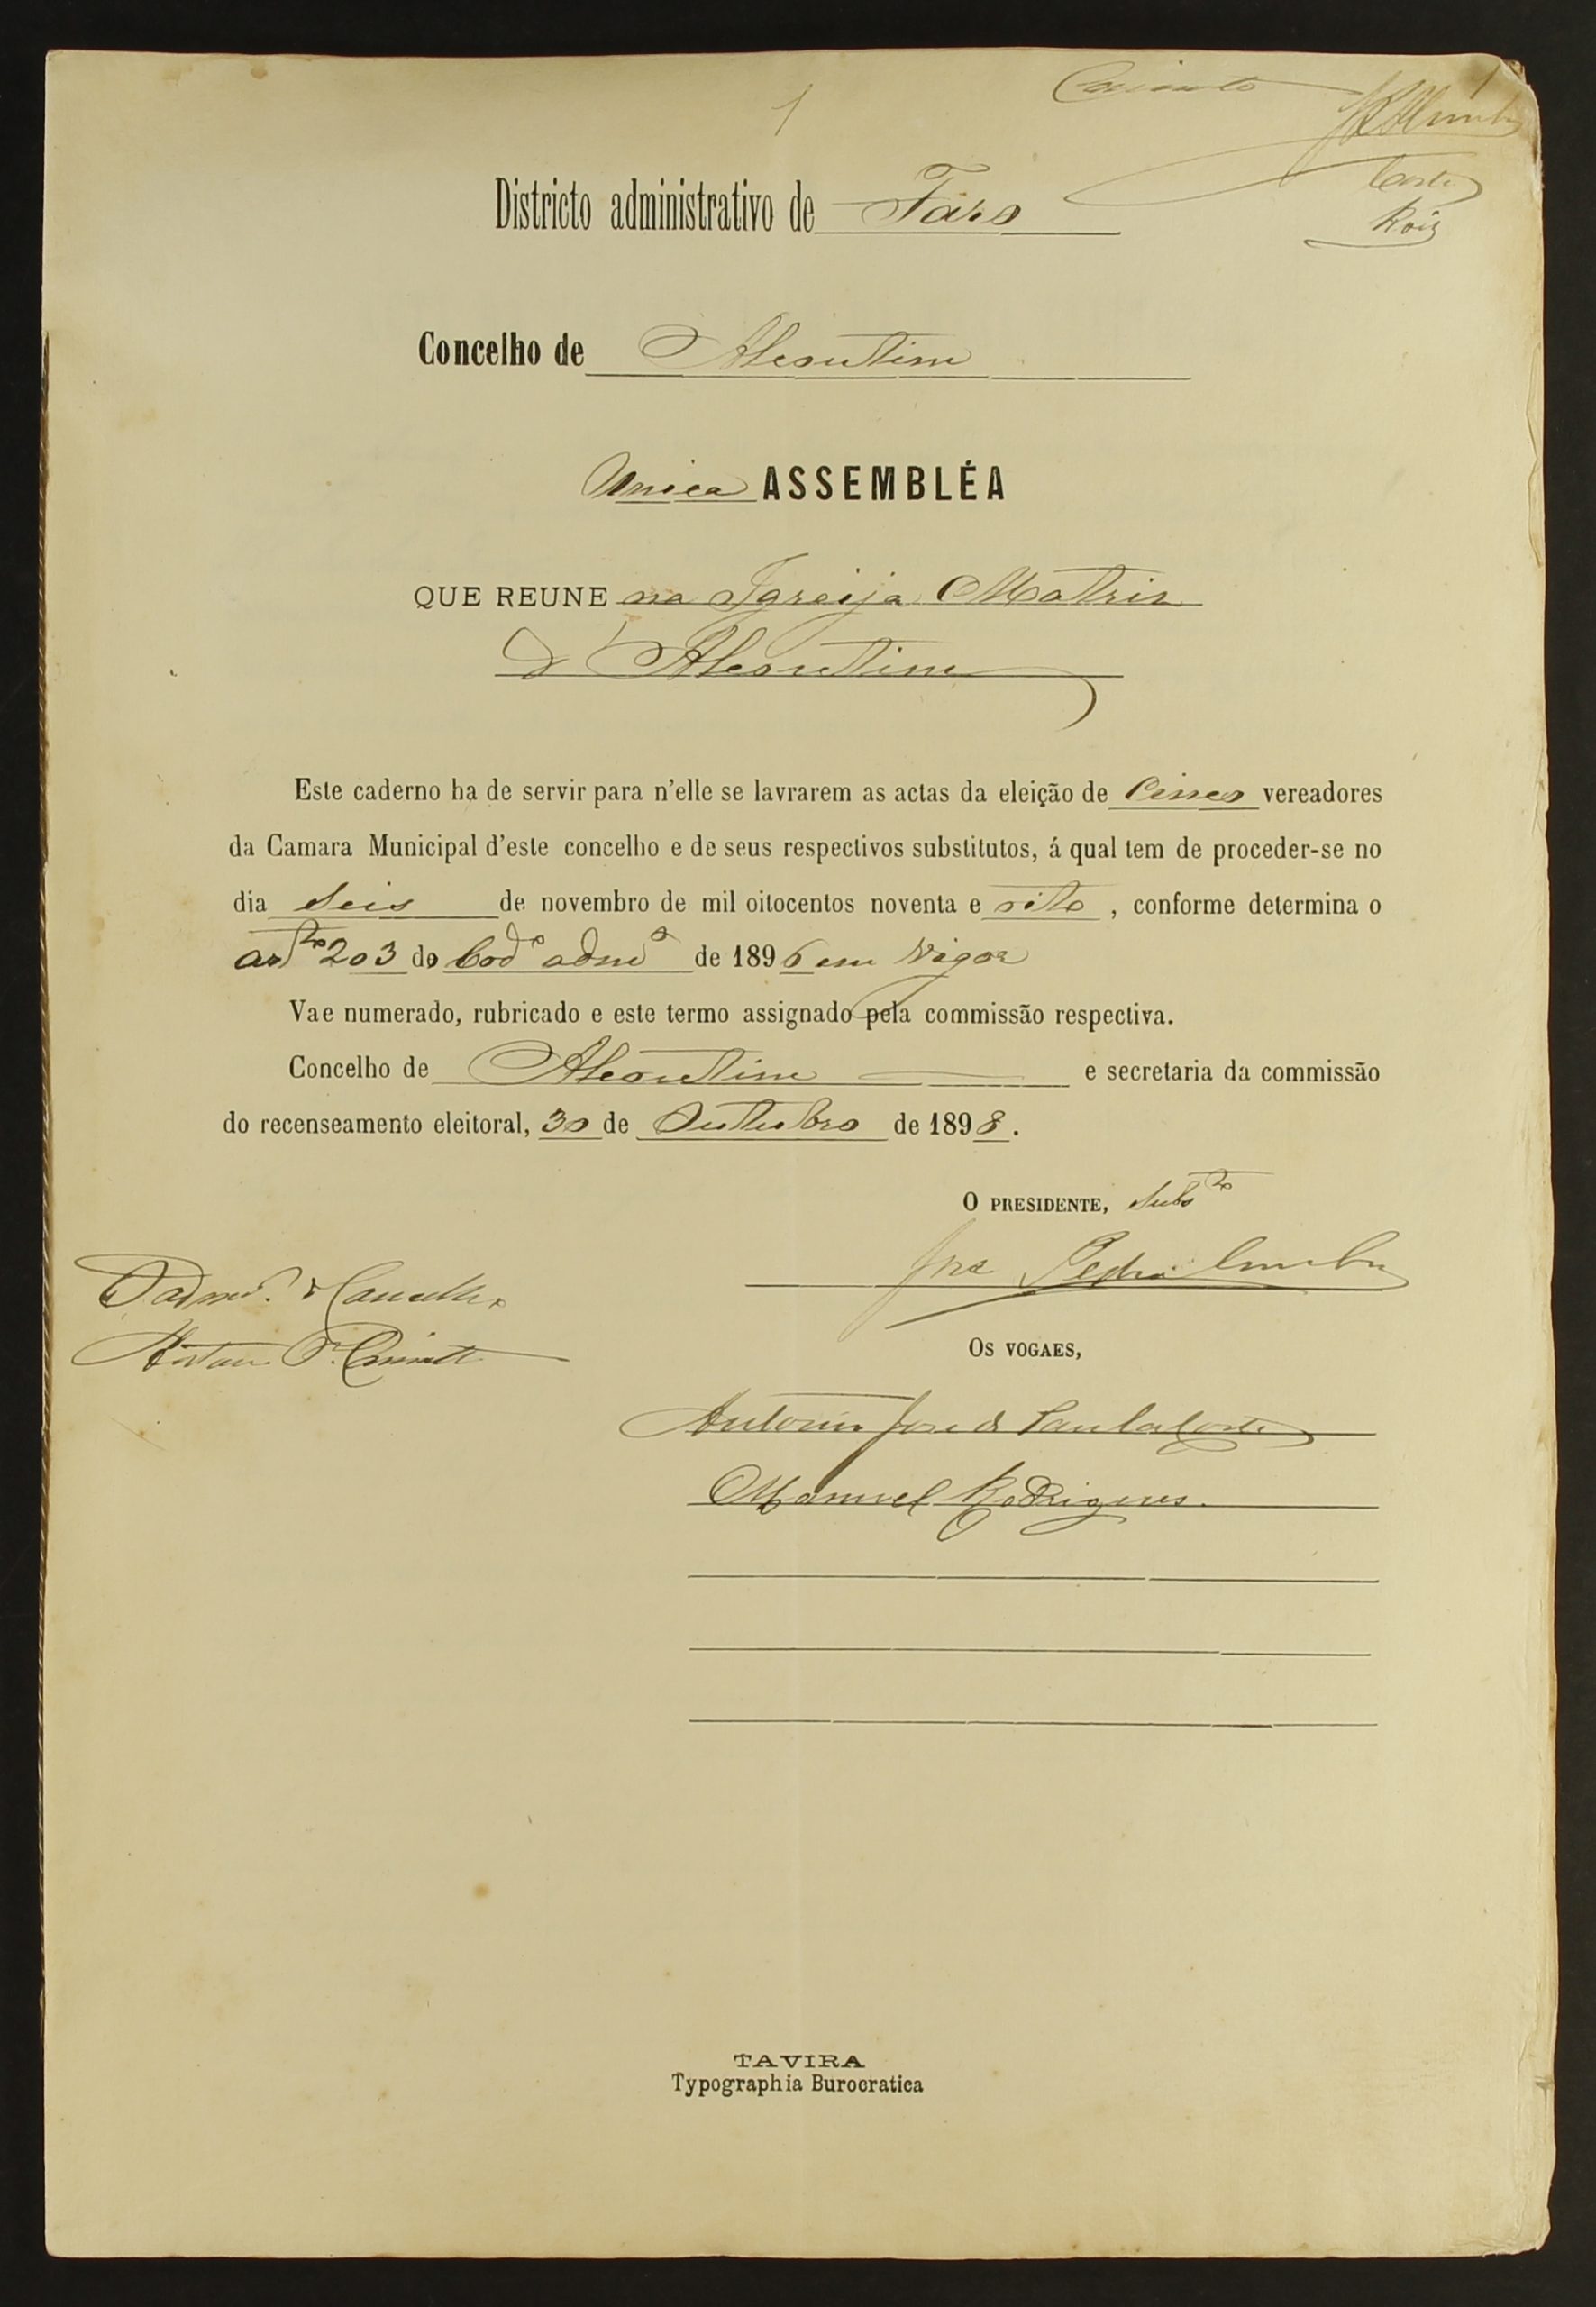 1
Costa
Roiz
Districto administrativo de Faro
Concelho de Alcoutim
Unica ASSEMBLÉA
QUE REUNE na Igreija Matriz
d'Alcoutim
Este caderno ha de servir para n'elle se lavrarem as actas da eleição de Cinco vereadores
da Camara Municipal d'este concelho e de seus respectivos substitutos, á qual tem de proceder-se no
dia Seis de novembro de mil oitocentos noventa e oito, conforme determina o
artº 203 do Codº admº de 1896 em vigor
Vae numerado, rubricado e este termo assignado pela commissão respectiva.
Concelho de Alcoutim e secretaria da commissão
do recenseamento eleitoral, 30 de Outubro de 1898.
O PRESIDENTE, Substo
José Pedro
OS VOGAES,
Antonio José de Paula Costa
Manuel Rodrigues.
TAVIRA
Typographia Burocratica